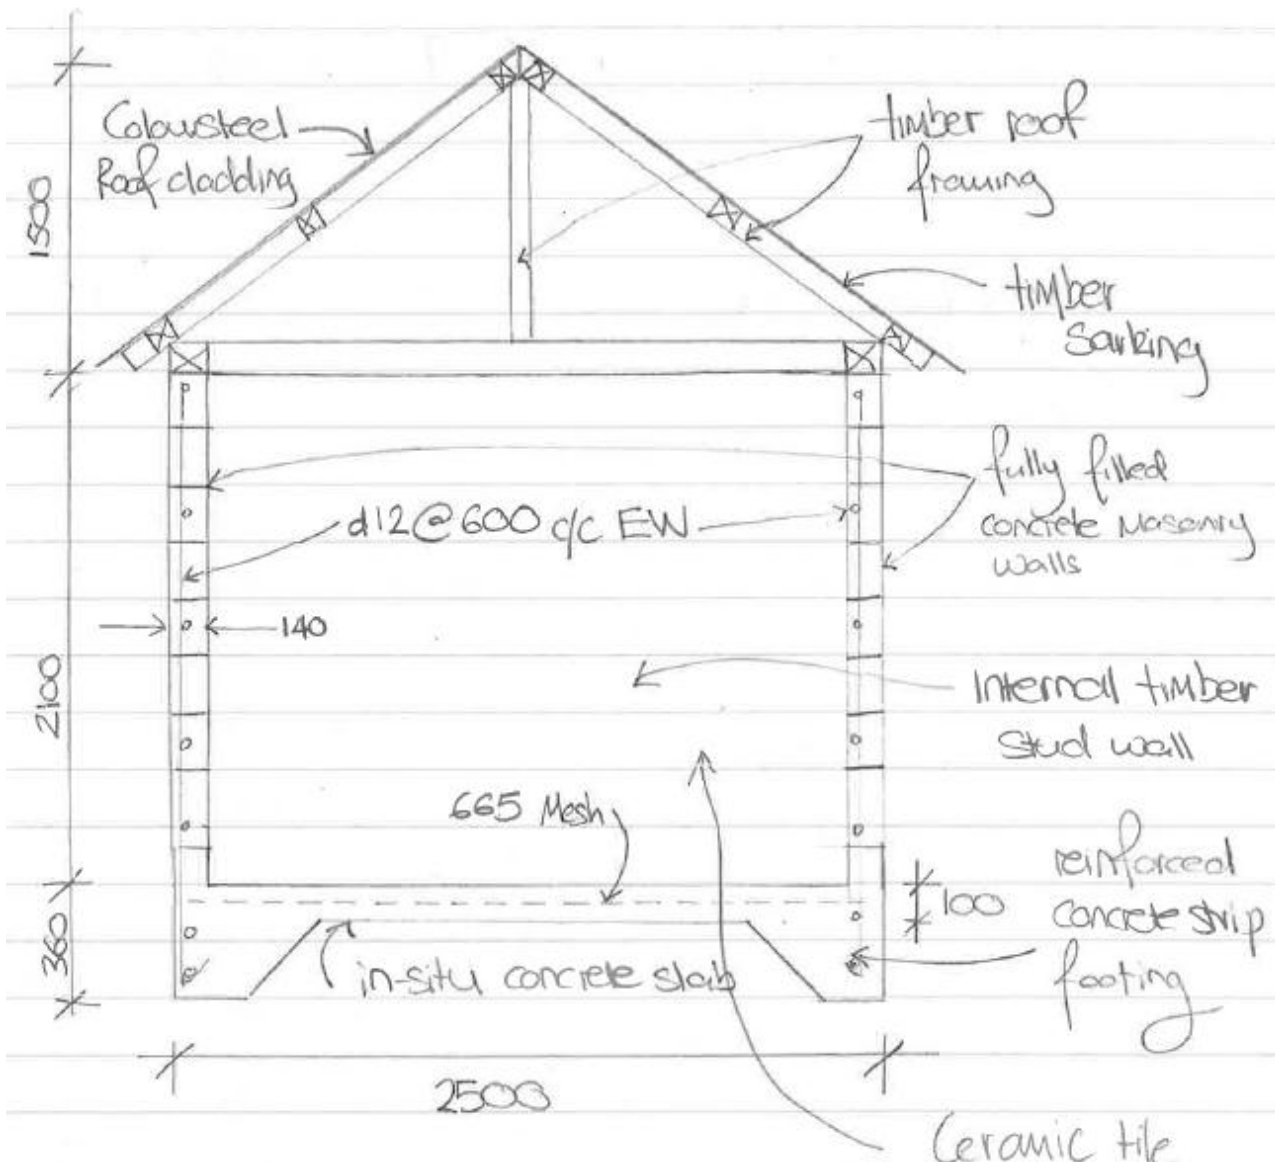 1500
Coloursteel
Roof cladding
timber roof
framing
timber
Sarking
fully filled
concrete Masonry
walls
d12@600 c/c EW
140
2100
Internal timber
Stud wall
665 Mesh
reinforced
concrete strip
footing
100
360
in-situ concrete slab
2500
Ceramic tile